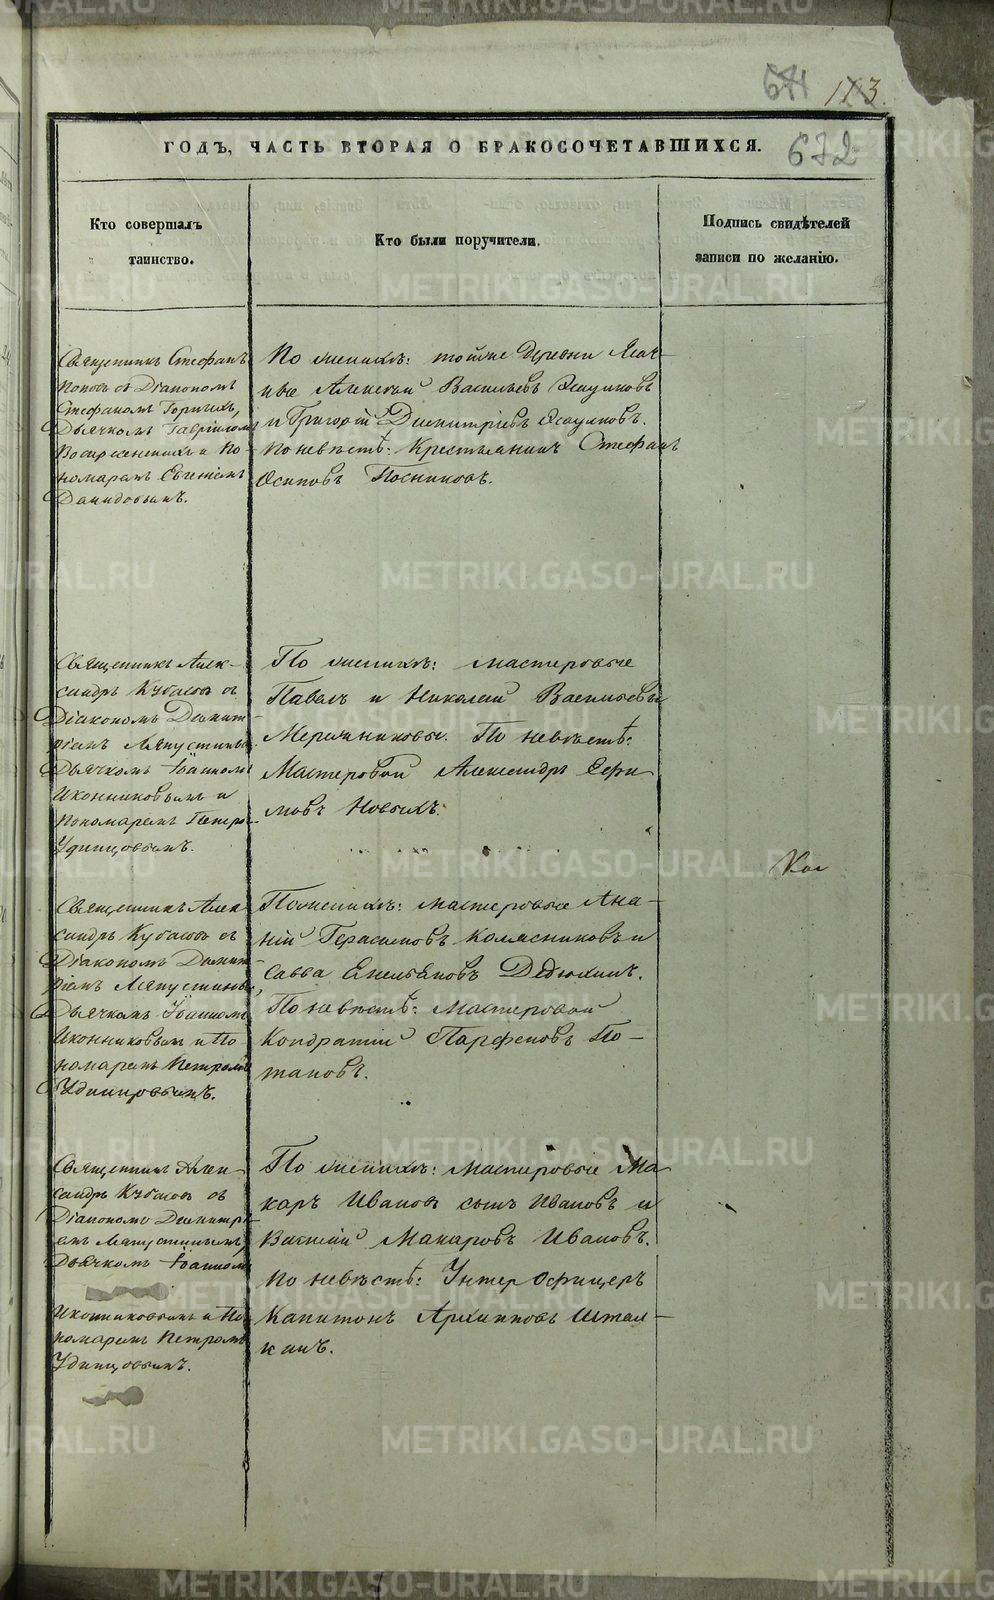 113.
672
ГОДЪ, ЧАСТЬ ВТОРАЯ О БРАКОСОЧЕТАВШИХСЯ.
Кто совершалъ
таинство.
Кто были поручители.
Подпись свидѣтелей
записи по желанію.
Священникъ Стефанъ
Поповъ съ Діакономъ
Стефаномъ
Дьячкомъ Гавріиломъ
Воскресенскимъ и По-
номаремъ Евгеніемъ
Давидовымъ.
По женихѣ: тойже деревни
Алексѣй Васильевъ
и Григорій Димитріевъ
По невѣстѣ: Крестьянинъ Стефанъ
Осиповъ Посниковъ.
Священникъ Алек-
сандръ Кубасовъ съ
Діакономъ Димит-
ріемъ Ляпустинымъ
Дьячкомъ Іоанномъ
Иконниковымъ и
Пономаремъ Петро-
Удинцовымъ.
По женихѣ: мастеровые
Павелъ и Николай Васильевы
Мерзинниковы. По невѣстѣ:
Мастеровой Александръ Ефи
мовъ Новыхъ.
Священникъ Алек-
сандръ Кубасовъ съ
Діакономъ Димит-
ріемъ Ляпустинымъ,
Дьячкомъ Іоанномъ
Иконниковымъ и По-
номаремъ Петромъ
Удинцовымъ.
По женихѣ: мастеровые Ана-
ній Герасимовъ Колясниковъ и
Савва Емельяновъ Дедюхинъ.
По невѣстѣ: Мастеровой
Кондратій Парфеновъ По-
таповъ.
Священникъ Алек-
сандръ Кубасовъ съ
Діакономъ Димитрі-
емъ Ляпустинымъ,
Дьячкомъ Іоанномъ
Иконниковымъ и По
номаремъ Петромъ
Удинцовымъ.
По женихѣ: Мастеровые Ма-
каръ Ивановъ сынъ Ивановъ и
Василій Макаровъ Ивановъ.
По невѣстѣ: Унтеръ Офицеръ
Капитонъ Архиповъ Штал-
кинъ.
METRIKI.GASO-URAL.RU